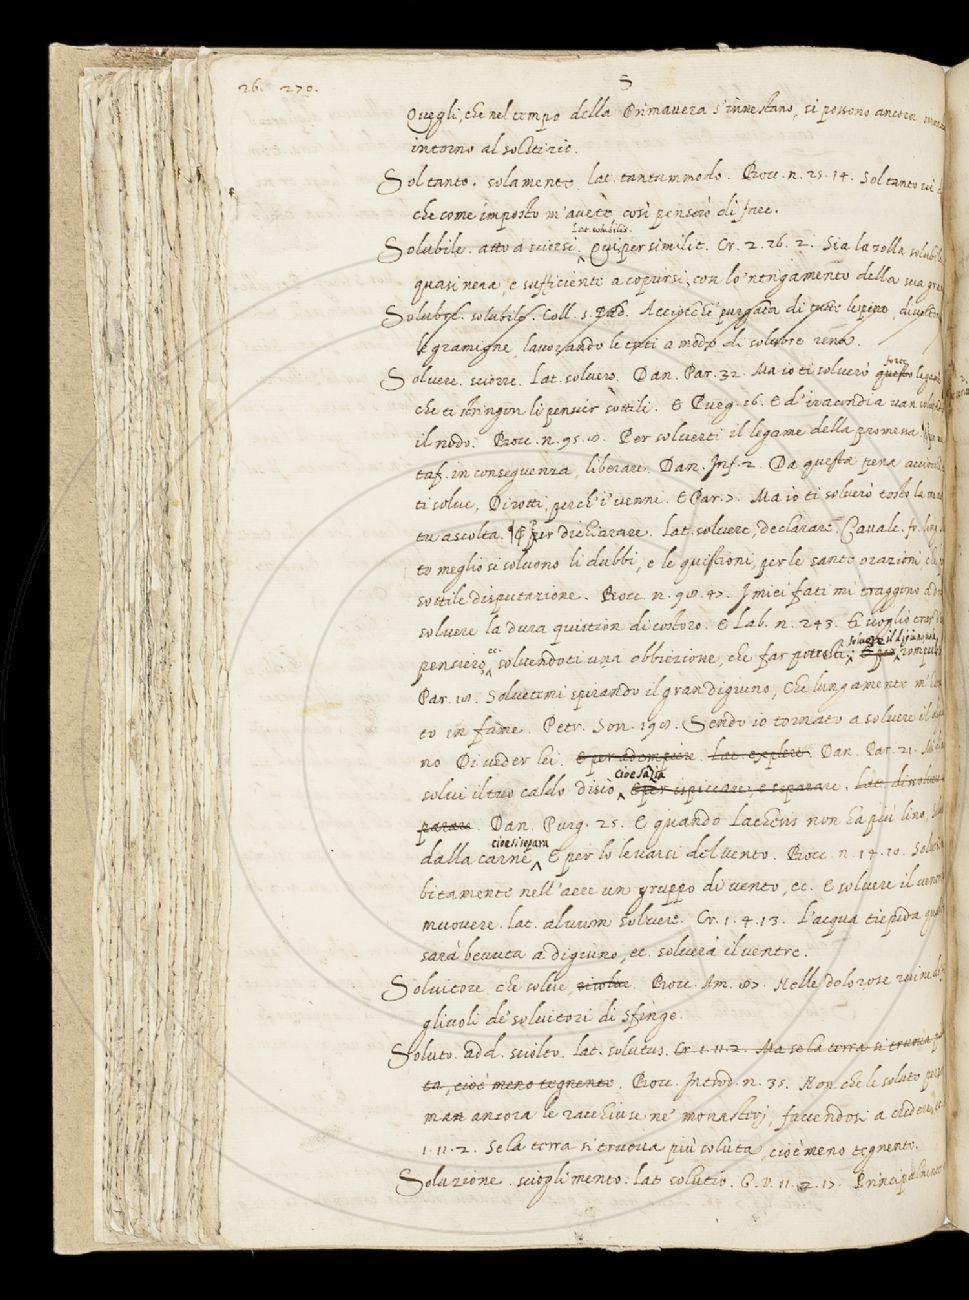 26. 270.
S
Quegli, che nel tempo della Primavera s'innestano, si possono ancora
intorno al solstizio.
Soltanto. solamente. lat. tantummodo. Bocc. n. 25. 14. Soltanto vi
che come imposto m'avete, così penserò di fare.
Lat. solubilis.
Solubile. atto a sciorsi. Qui per similit. Cr. 2. 26. 2. Sia la zolla solubile
quasi nera, e sufficiente a coprirsi, con lo'ntrigamento della sua
Solubre. solubile. Coll. S. Pad. Acciocchè purgata di tutte le spine,
le gramigne, lavorando le a modo di solubre rena.
forte
Solvere. sciorre. Lat. solvere. Dan. Par. 32. Ma io ti solverò questo legame
che ti stringon li pensier sottili. E Purg. 16. E d'iracondia van solvendo
il nodo. Bocc. n. 95. 8. Per solverti il legame della promessa.
taf. in conseguenza, liberare. Dan. Inf. 2. Da questa tema acciocchè
ti solve, Dirotti, perch'i' venni. E Par. 7. Ma io ti solverò tosto la mente
tu ascolta. ¶ E per dichiarare. Lat. solvere, declarare. Cavalc. fr. ling.
to meglio si solvono li dubbi, e le quistioni, per le sante orazioni che
sottile disputazione. Bocc. n. 98. 47. I miei fati mi traggono a
solvere la dura quistion di costoro. E Lab. n. 243. ti voglio
solvere il digiuno,
pensiero, solvendoti una obbiezione, che far potresti; E per rompere
Par. 19. Solvetemi spirando il gran digiuno, Che lungamente m'ha
to in fame. Petr. Son. Sendo io tornato a solvere il
no Di veder lei. E per adempiere. Lat. explere. Dan. Par. 21.
cioè sazia
solvi il tuo caldo disio. E per ispiccare, e separare. Lat.
parare. Dan. Purg. 25. E quando Lachesis non ha più lino,
cioè si separa
dalla carne, E per lo levarsi del vento. Bocc. n. 14. 10.
bitamente nell'aere un gruppo di vento, ec. E solvere il ventre
muovere. lat. alvum solvere. Cr. 1. 4. 13. L'acqua tiepida
sarà bevuta a digiuno, ec. solverà il ventre.
Solvitore che solve, Bocc. Am. 87. Nelle dolorose
gliuoli de' solvitori di Sfinge.
Soluto. add. sciolto. lat. solutus. Cr. 1. 11. 2. Ma se la terra si truova
ta, cioè meno tegnente. Bocc. Introd. n. 35. Non che le solute
ma ancora le racchiuse ne' monasterj, faccendosi a credere,
1. 11. 2. Se la terra si truova più soluta, cioè meno tegnente.
Soluzione. scioglimento. lat. solutio. G. V. 11. 2. 17. Principalmente